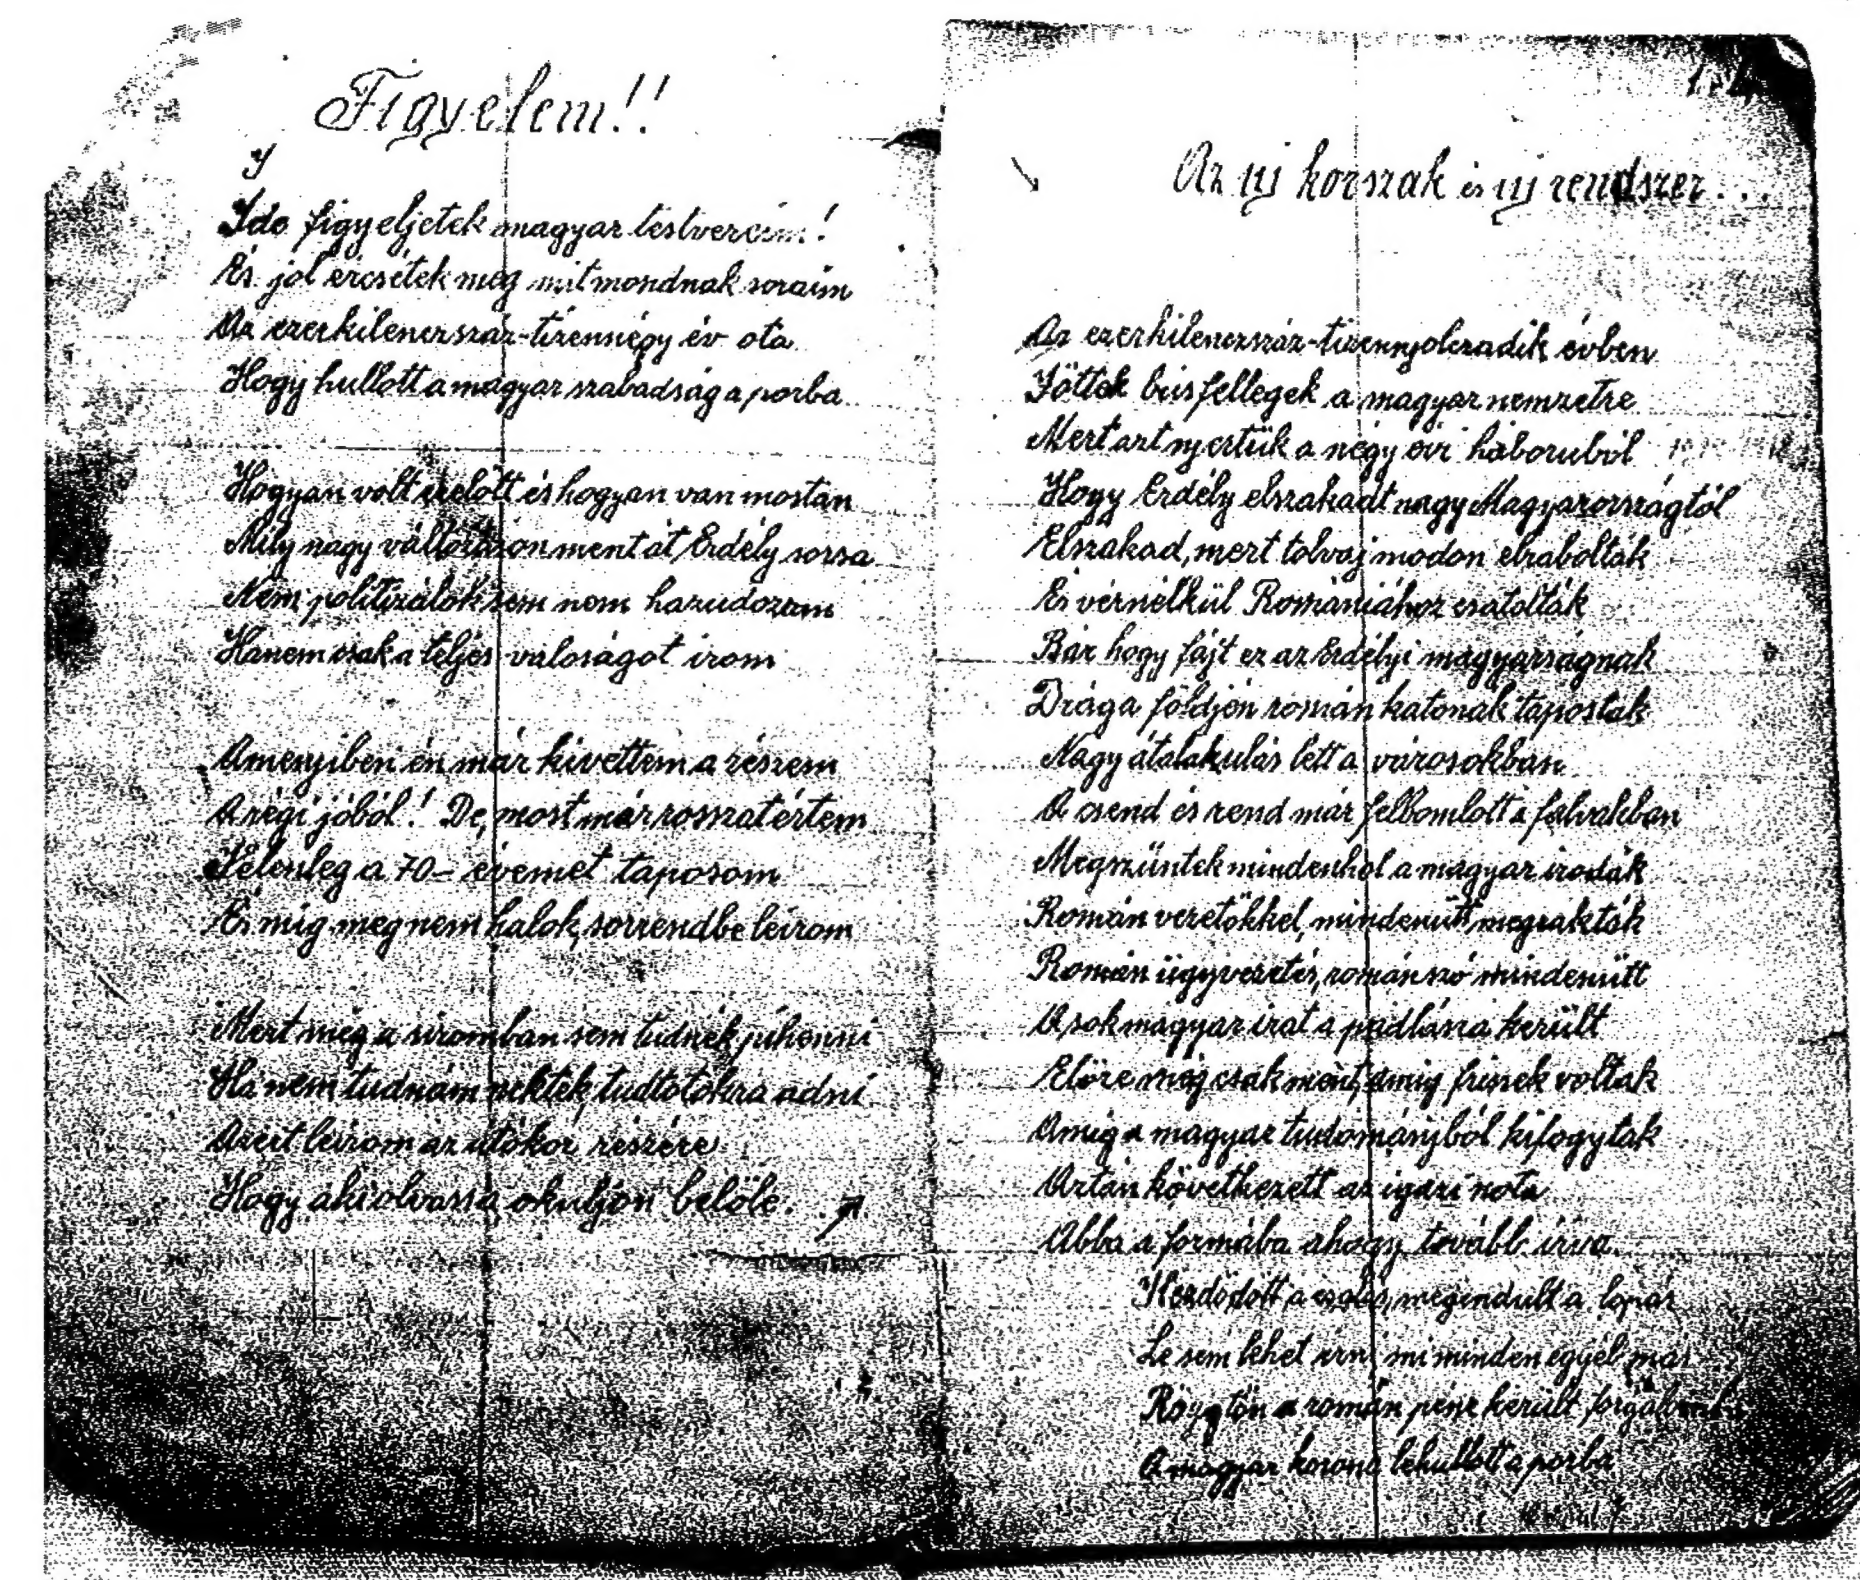 Figyelem!!
I
Ide figyeljetek magyar testvereim!
És jól ércsétek meg mit mondnak soraim
Az ezerkilencszáz-tizennégy év ota
Hogy hullott a magyar szabadság a porba
Hogyan volt ezelőtt és hogyan van mostan
Mily nagy változáson ment át Erdély sorsa
Nem politizálok sem nem hazudozom
Hanem csak a teljes valoságot irom
Amenyiben én már kivettem a részem
A régi jóból! De, most már rosszat értem
Jelenleg a 70- évemet taposom
És mig meg nem halok, sorrendbe leirom
Mert még a siromban sem tudnék pihenni
Ha nem tudnám nektek, tudtotokra adni
Azért leirom az utókor részére
Hogy aki olvassa, okuljon belőle.
Az uj korszak és uj rendszer...
Az ezerkilencszáz-tizennyolczadik évben
Jöttek bús fellegek a magyar nemzetre
Mert azt nyertük a négy évi háboruból
Hogy Erdély elszakadt nagy Magyarországtól
Elszakad, mert tolvaj modon elrabolták
És vérnélkül Romániához csatolták
Bár hogy fájt ez az Erdélyi magyarságnak
Drága földjén román katonák tapostak
Nagy átalakulás lett a városokban
A csend és rend már felbomlott a falvakban
Megszüntek mindenhol a magyar irodák
Román vezetőkkel, mindenütt megrakták
Román ügyvezetés, román szó mindenütt
A sok magyar irat a padlásra került
Előre még csak ment, amig frissek voltak
Amig a magyar tudományból kifogytak
Aztán következett az igazi nota
Abba a formába ahogy tovább irva.
Kezdödött a csalás, megindult a lopás
Le sem lehet irni mi minden egyéb más
Rögtön a román pénz került forgalomba
A magyar korona lehullott a porba